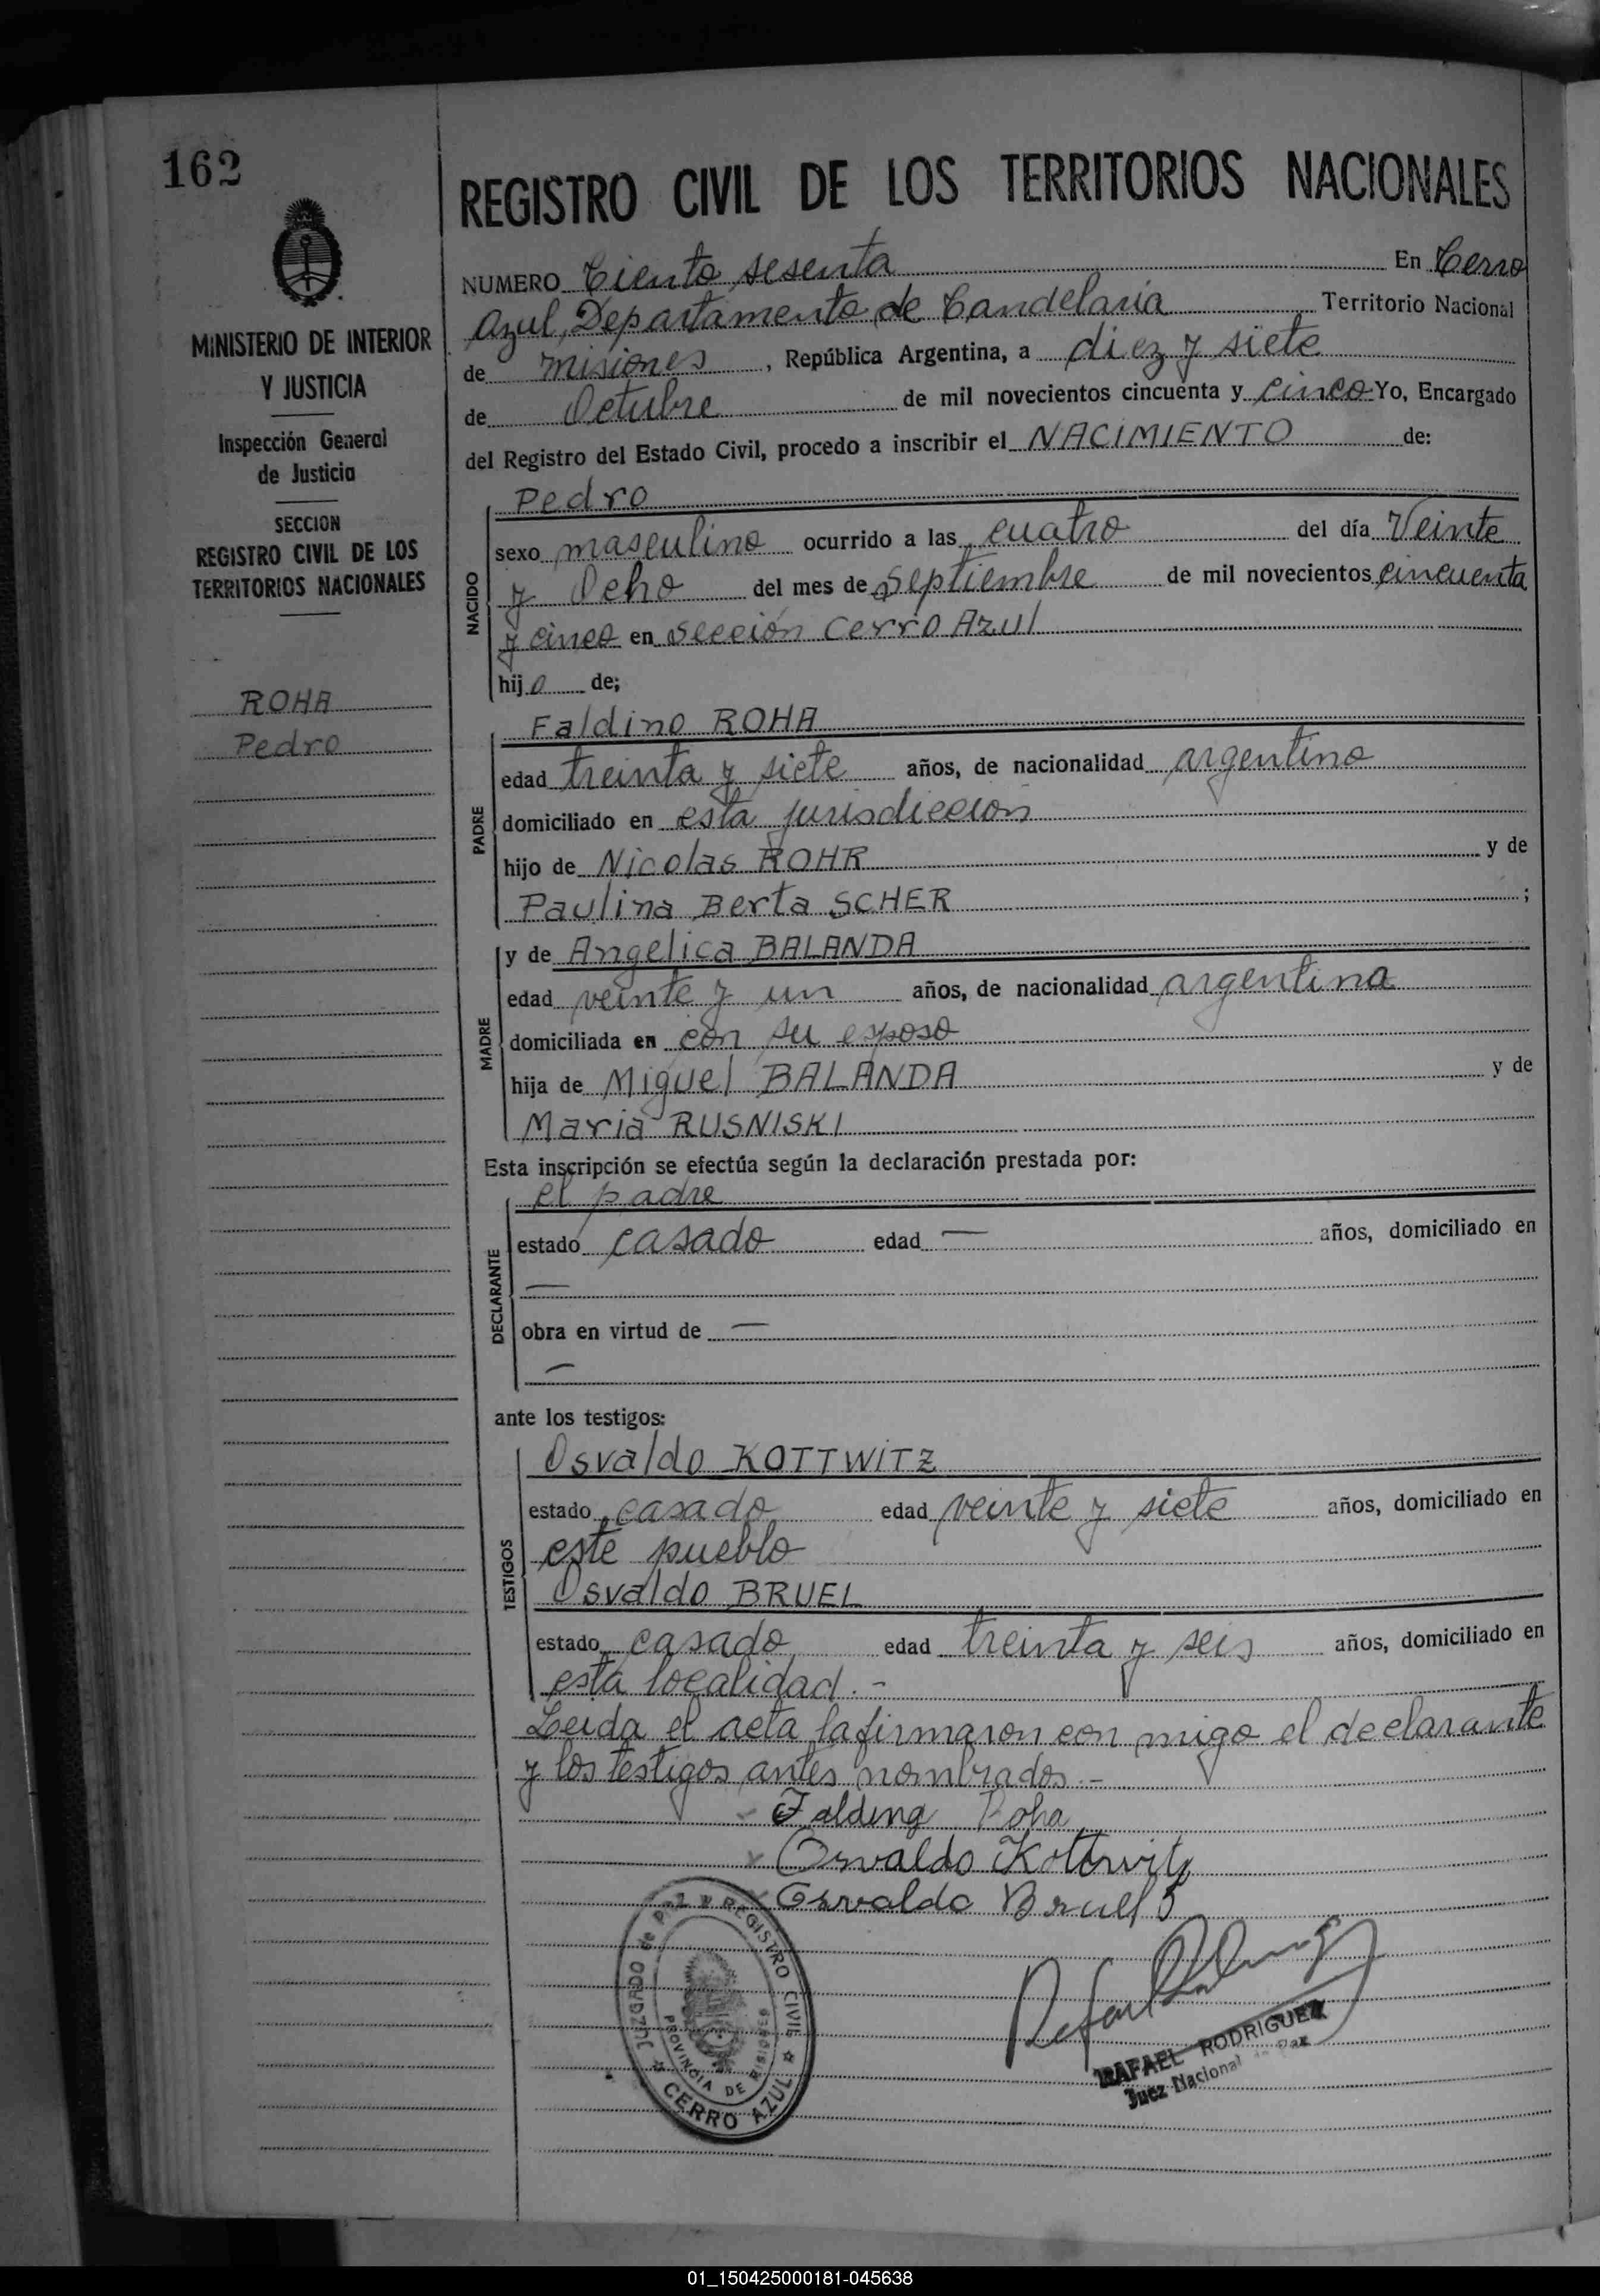 162
REGISTRO CIVIL DE LOS TERRITORIOS NACIONALES
MINISTERIO DE INTERIOR
Y JUSTICIA
Inspección General
de Justicia
SECCION
REGISTRO CIVIL DE LOS
TERRITORIOS NACIONALES
ROHA
Pedro
NUMERO Ciento sesenta En Cerro
Azul, Departamento de Candelaria Territorio Nacional
de misiones, República Argentina, a diez y siete
de Octubre de mil novecientos cincuenta y cinco Yo, Encargado
del Registro del Estado Civil, procedo a inscribir el NACIMIENTO de:
NACIDO
Pedro
sexo masculino ocurrido a las cuatro del día Veinte
y Ocho del mes de Septiembre de mil novecientos cincuenta
y cinco en Sección Cerro Azul
hijo de;
PADRE
Faldino ROHA
edad treinta y siete años, de nacionalidad argentino
domiciliado en esta jurisdiccion
hijo de Nicolas ROHR y de
Paulina Berta SCHER ;
MADRE
y de Angelica BALANDA
edad veinte y un años, de nacionalidad argentina
domiciliada en con su esposo
hija de Miguel BALANDA y de
Maria RUSNISKI
Esta inscripción se efectúa según la declaración prestada por:
DECLARANTE
el padre
estado casado edad — años, domiciliado en
—
obra en virtud de —
—
ante los testigos:
TESTIGOS
Osvaldo KOTTWITZ
estado casado edad veinte y siete años, domiciliado en
este pueblo
Osvaldo BRUEL
estado casado edad treinta y seis años, domiciliado en
esta localidad.-
Leida el acta la firmaron con migo el declarante
y los testigos antes nombrados.-
Falding Roha
Osvaldo Kottwitz
Osvaldo Bruel
JUZGADO de PAZ Y REGISTRO CIVIL
PROVINCIA DE MISIONES
CERRO AZUL
RAFAEL RODRIGUEZ
Juez Nacional de Paz
01_150425000181-045638